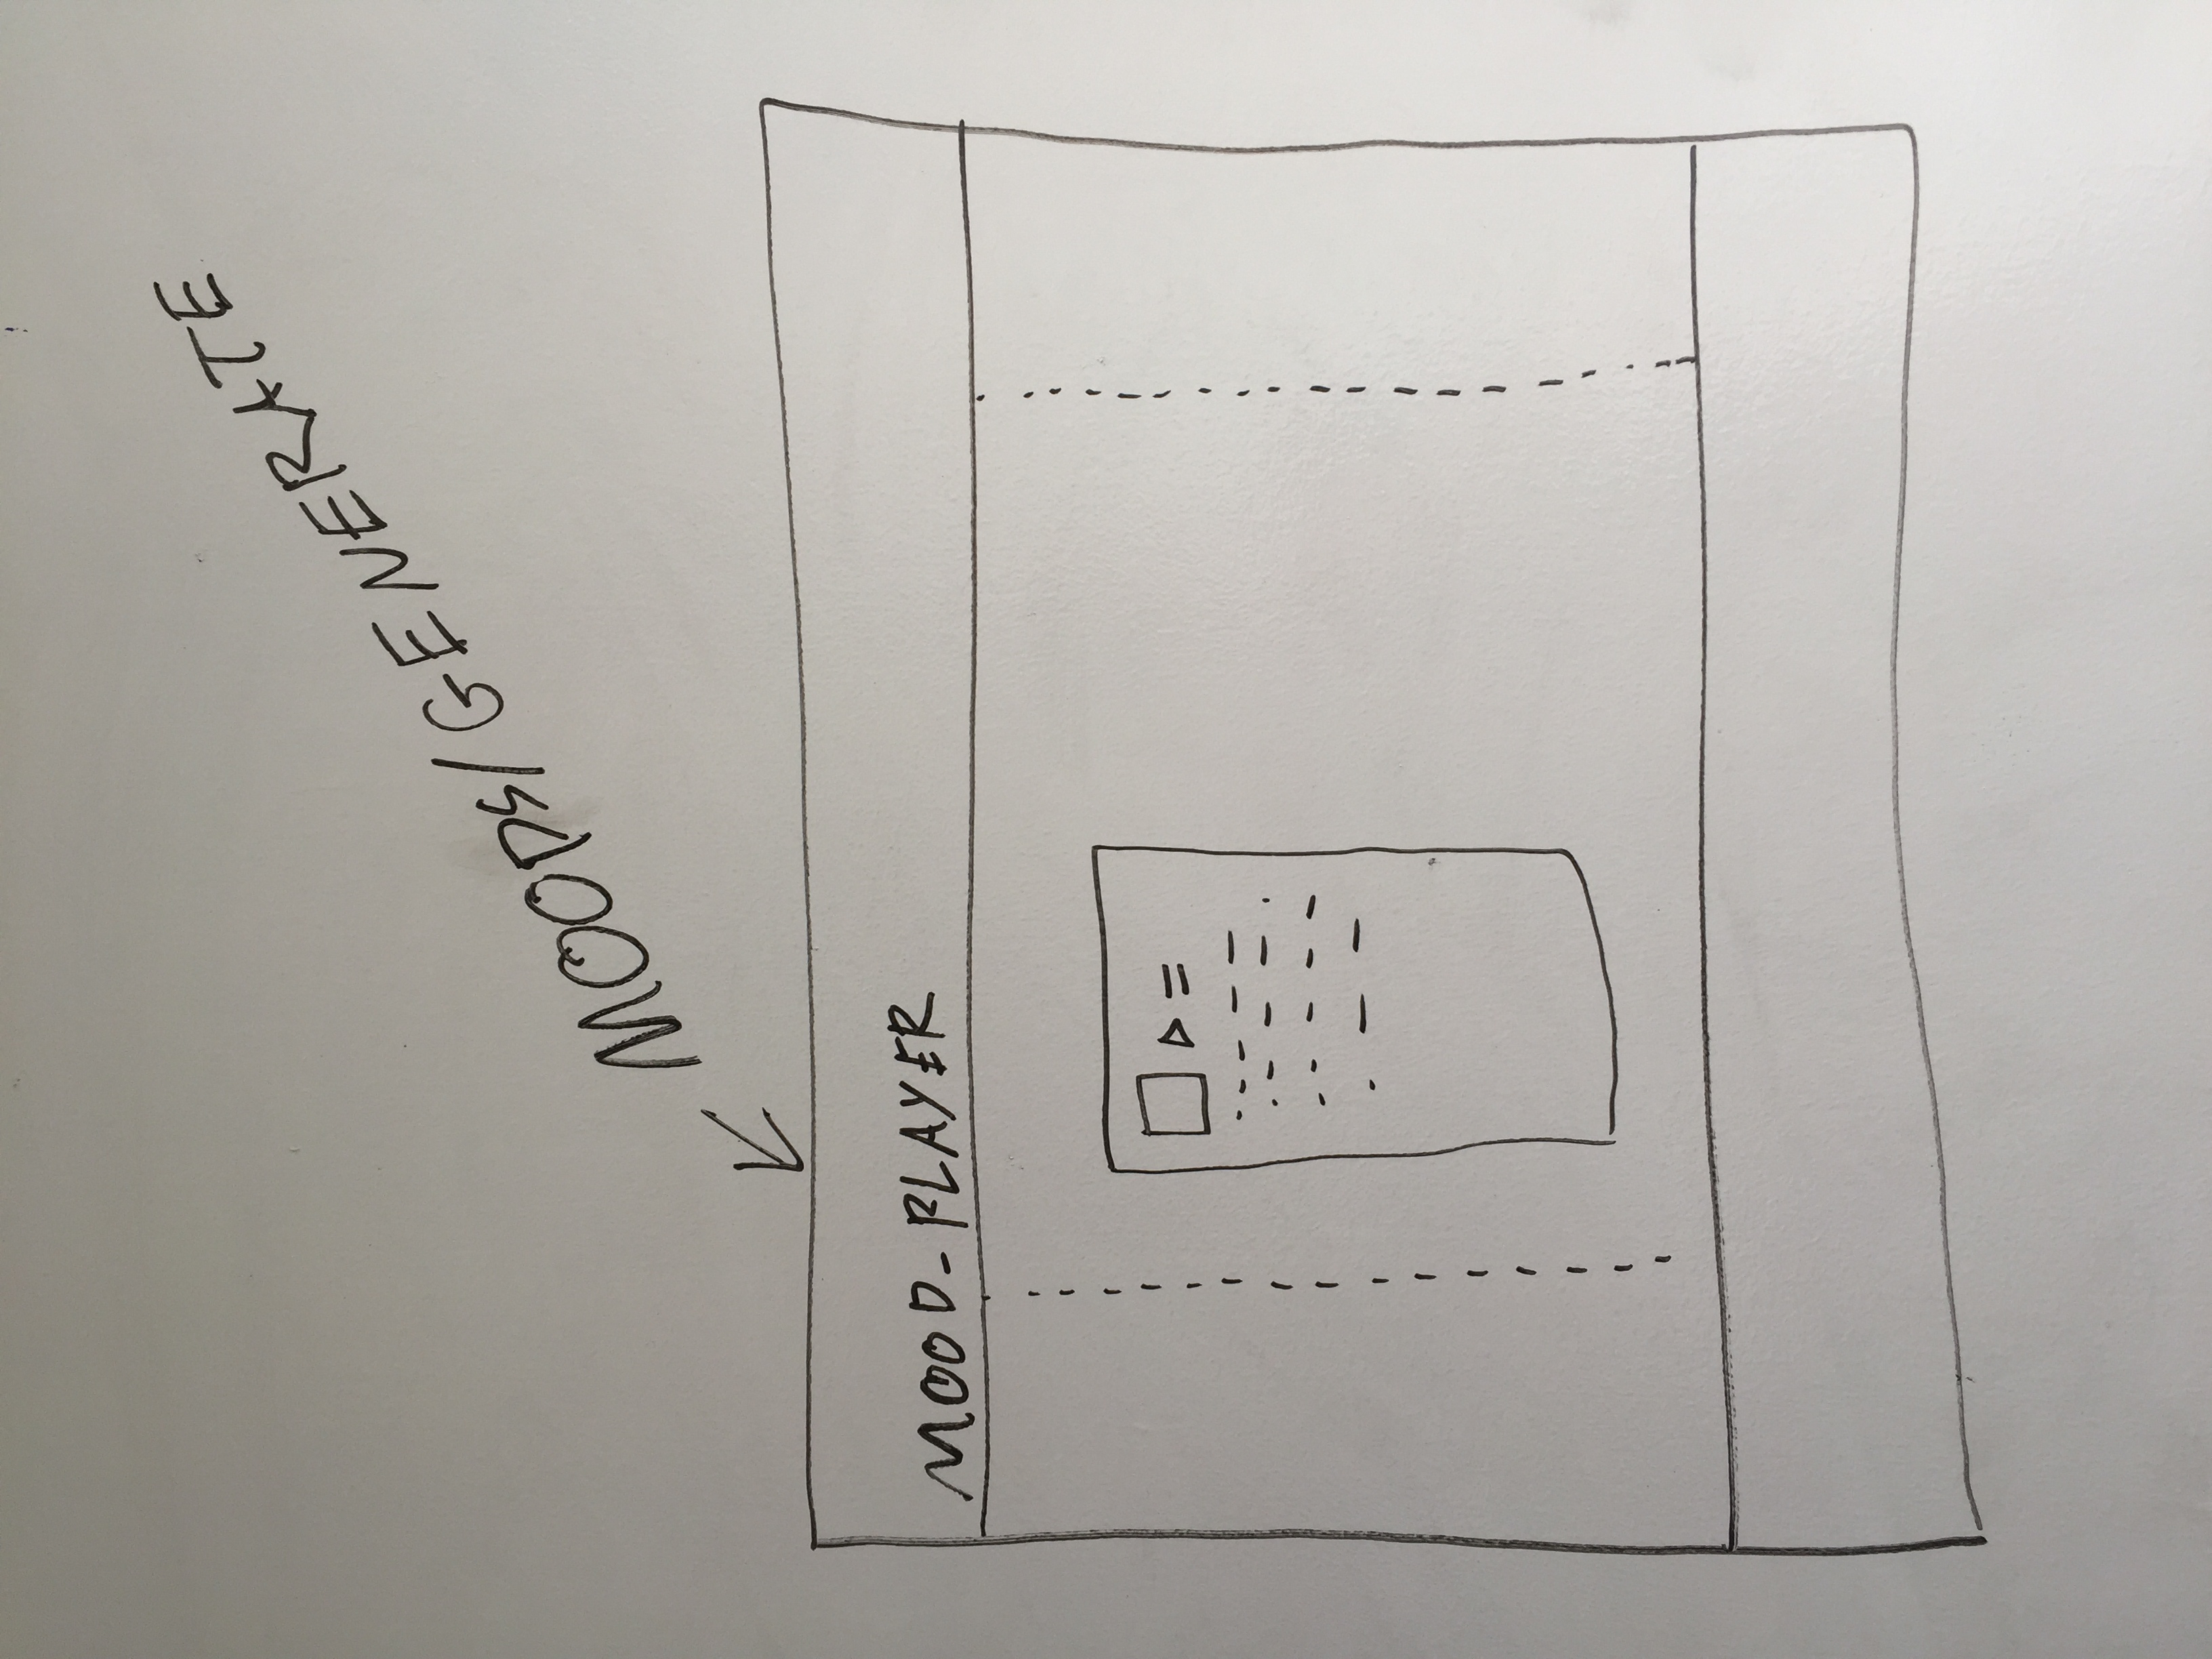 MOODS/GENERATE
MOOD-PLAYER